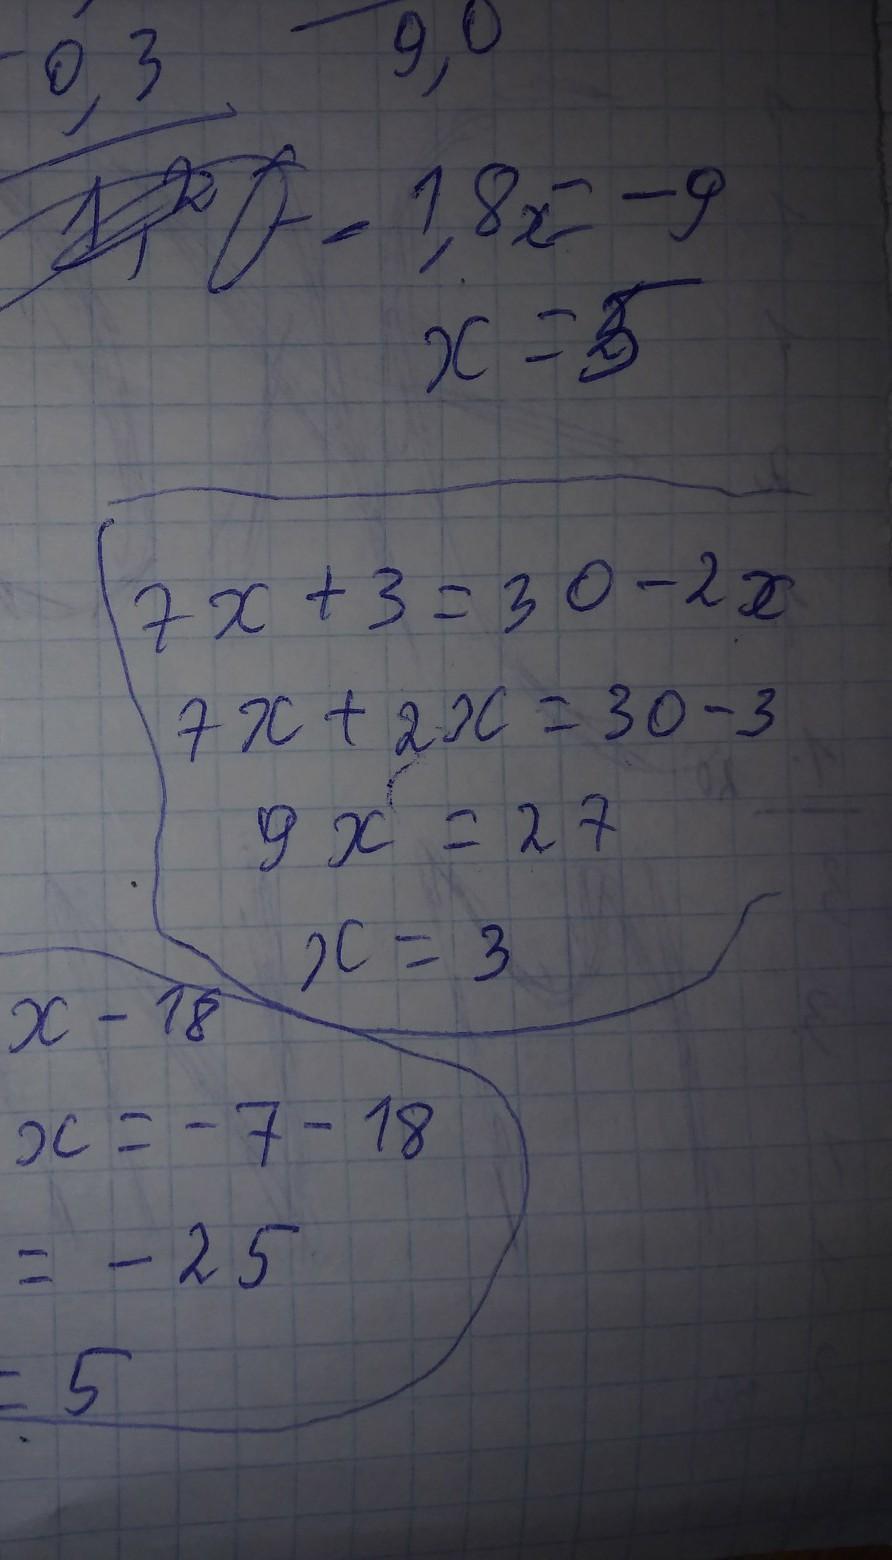 0,3 9,0
- 1,8x = -9
x = 5
7x + 3 = 30 - 2x
7x + 2x = 30 - 3
9x = 27
x = 3
x - 18
x = -7 - 18
= -25
= 5